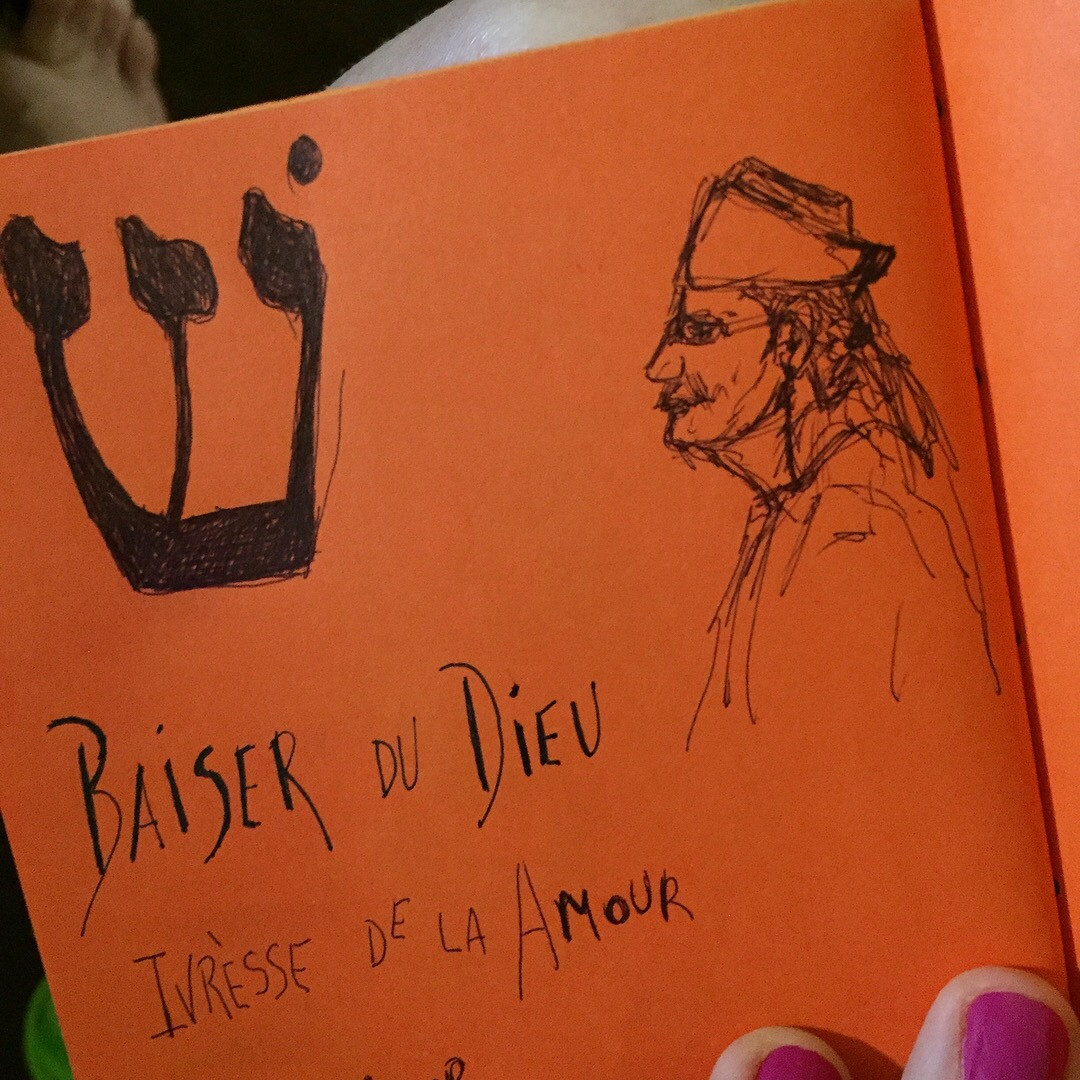 שׁ
BAISER DU DIEU
IVRÈSSE DE LA AMOUR